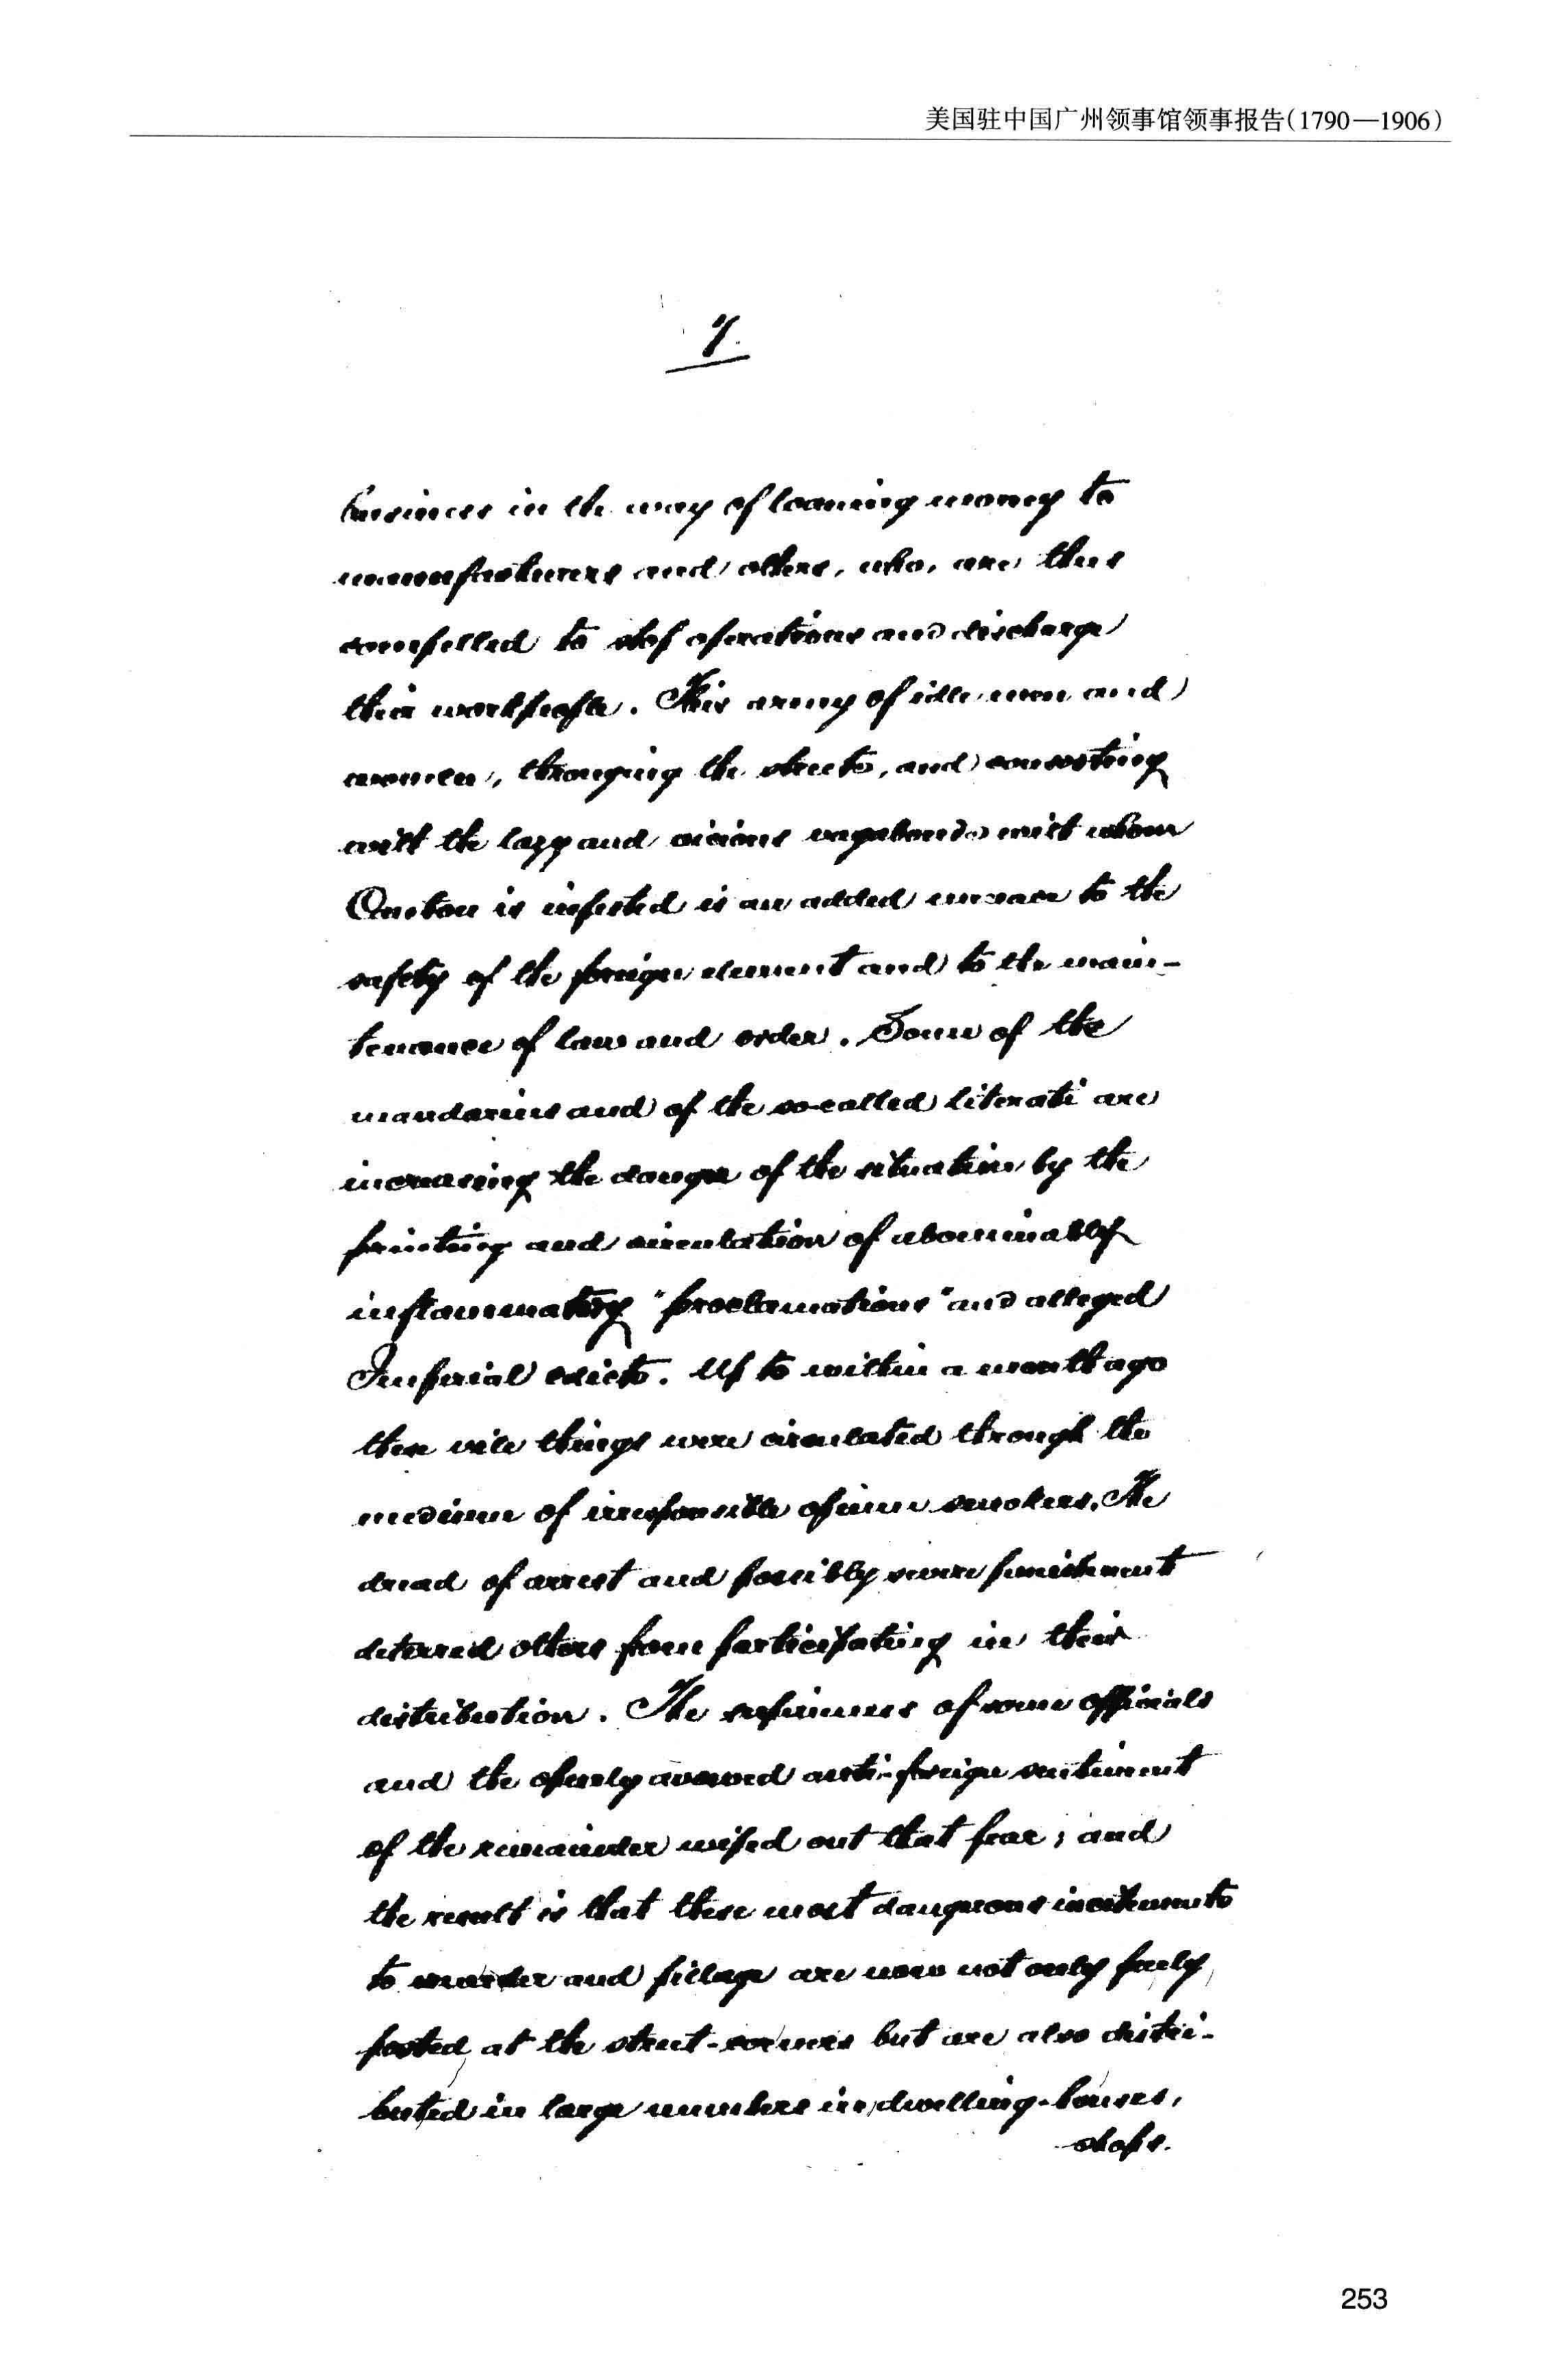 美国驻中国广州领事馆领事报告(1790—1906)
7.
business in the way of loaning money to
manufacturers and others, who, are thus
compelled to stop operations and discharge
their workpeople. This army of idle men and
women, thronging the streets, and consorting
with the lazy and vicious vagabonds with whom
Canton is infested is an added menace to the
safety of the foreign element and to the main-
tenance of law and order. Some of the
mandarins and of the so-called literati are
increasing the danger of the situation by the
printing and circulation of abominably
inflammatory "proclamations" and alleged
Imperial edicts. Up to within a month ago
these vile things were circulated through the
medium of irresponsible opium smokers. The
dread of arrest and possibly severe punishment
deterred others from participating in their
distribution. The supineness of some officials
and the openly avowed anti-foreign sentiment
of the remainder wiped out that fear; and
the result is that these most dangerous incitements
to murder and pillage are now not only freely
posted at the street-corners but are also distri-
buted in large numbers in dwelling-houses,
shops.
253